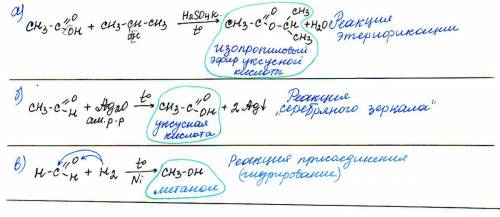 а) CH₃-C(=O)OH + CH₃-CH(OH)-CH₃ →(H₂SO₄ к., t°) CH₃-C(=O)O-CH(CH₃)CH₃ + H₂O Реакция этерификации
изопропиловый эфир уксусной кислоты
б) CH₃-C(=O)H + Ag₂O →(t°, ам. р-р) CH₃-C(=O)OH + 2 Ag↓ Реакция "серебряного зеркала"
уксусная кислота
в) H-C(=O)H + H₂ →(t°, Ni) CH₃-OH Реакция присоединения (гидрирование)
метанол